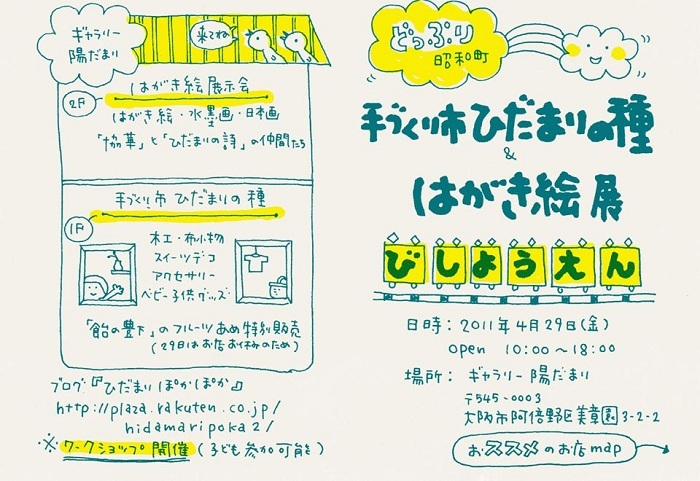 ギャラリー
陽だまり
来てね
2F
はがき絵展示会
はがき絵・水墨画・日本画
「協華」と「ひだまりの詩」の仲間たち
手づくり市 ひだまりの種
1F
木工・布小物
スイーツデコ
アクセサリー
ベビー子供グッズ
「飴の豊下」のフルーツあめ特別販売
(29日はお店お休みのため)
ブログ『ひだまり ぽかぽか』
http://plaza.rakuten.co.jp/
hidamaripoka2/
※ワークショップ開催(子ども参加可能)
どっぷり
昭和町
手づくり市ひだまりの種
&
はがき絵展
びしょうえん
日時:2011年4月29日(金)
open 10:00〜18:00
場所:ギャラリー陽だまり
〒545-0003
大阪市阿倍野区美章園3-2-2
おススメのお店map